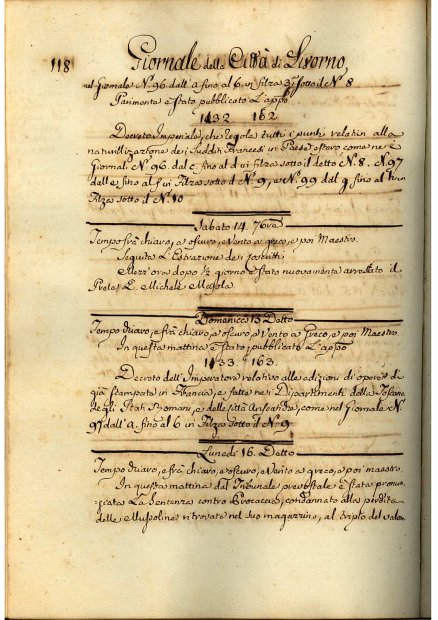 118 Giornale della Città di Livorno
nel Giornale N.º 96 dall' a fino al 6 in filza 3ª sotto d N.º 8
Parimente è stato pubblicato L'appº
1432. 162
Decreto Imperiale, che regola tutti i punti relativi alla
naturalizzazione dei Sudditi Francesi in Paese estero come ne
Giornali N.º 96. dal c fino al d in filza sotto d detto N.º 8. N.º 97
dall e fino al f in Filza sotto d N.º 9, e N.º 99 dal g fino al h in
Filza sotto d N.º 10
Sabato 14. 76re
Tempo frà chiaro, e oscuro, e Vento a greco, e poi Maestro.
Seguita L'Estrazione dei
Mezz'ora dopo ½ giorno è stato nuovamente arrestato il
Prete L. Michele
Domenica 15 Detto
Tempo chiaro, e frà chiaro, e oscuro, e Vento a Greco, e poi Maestro
In questa mattina è stato pubblicato L'appº
1433. 163.
Decreto dell'Imperatore relativo alle edizioni di opere
già stampate in Francia, e fatte nei Dipartimenti della Toscana
degli Stati Romani, e delle Città Anseatiche, come nel Giornale N.º
97 dall' a fino al 6 in Filza sotto d N.º 9
Lunedì 16. Detto
Tempo chiaro, e frà chiaro, e oscuro, e Vento a greco, e poi maestro.
In questa mattina dal Tribunale prevostale è stata pronun-
-ziata La Sentenza contro condannato alla perdita
delle Mussoline ritrovate nel suo magazzino, al triplo del valor